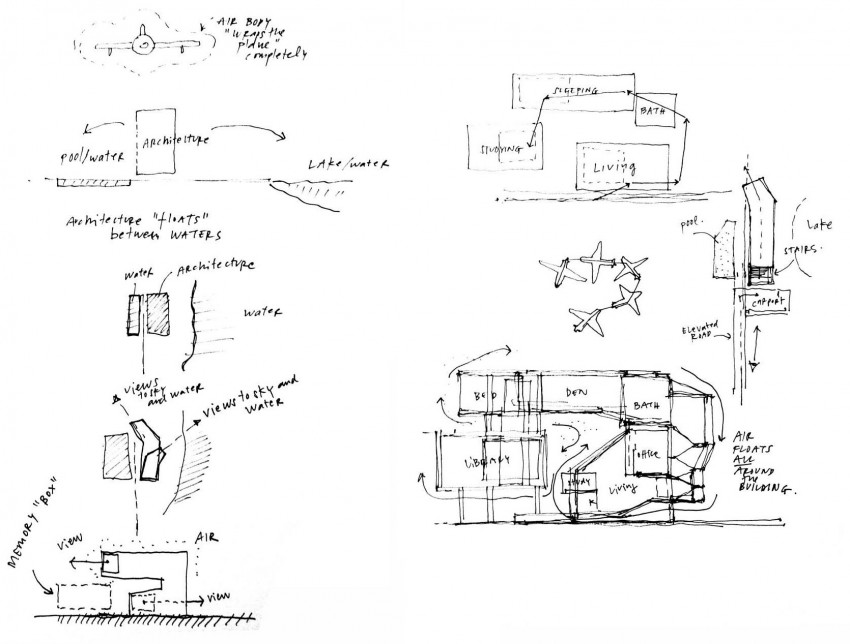 AIR BODY
"WRAPS THE
PLANE"
completely
Architecture
pool/water
Lake/water
Architecture "floats"
between WATERS
water
Architecture
water
views
to sky
and water
views to sky and
water
MEMORY "BOX"
AIR
view
view
SLEEPING
BATH
STUDYING
Living
pool.
Lake
STAIRS.
CARPORT
ELEVATED
ROAD
BED
DEN
BATH
LIBRARY
OFFICE
Living
K
AIR
FLOATS
ALL
AROUND
THE
BUILDING.